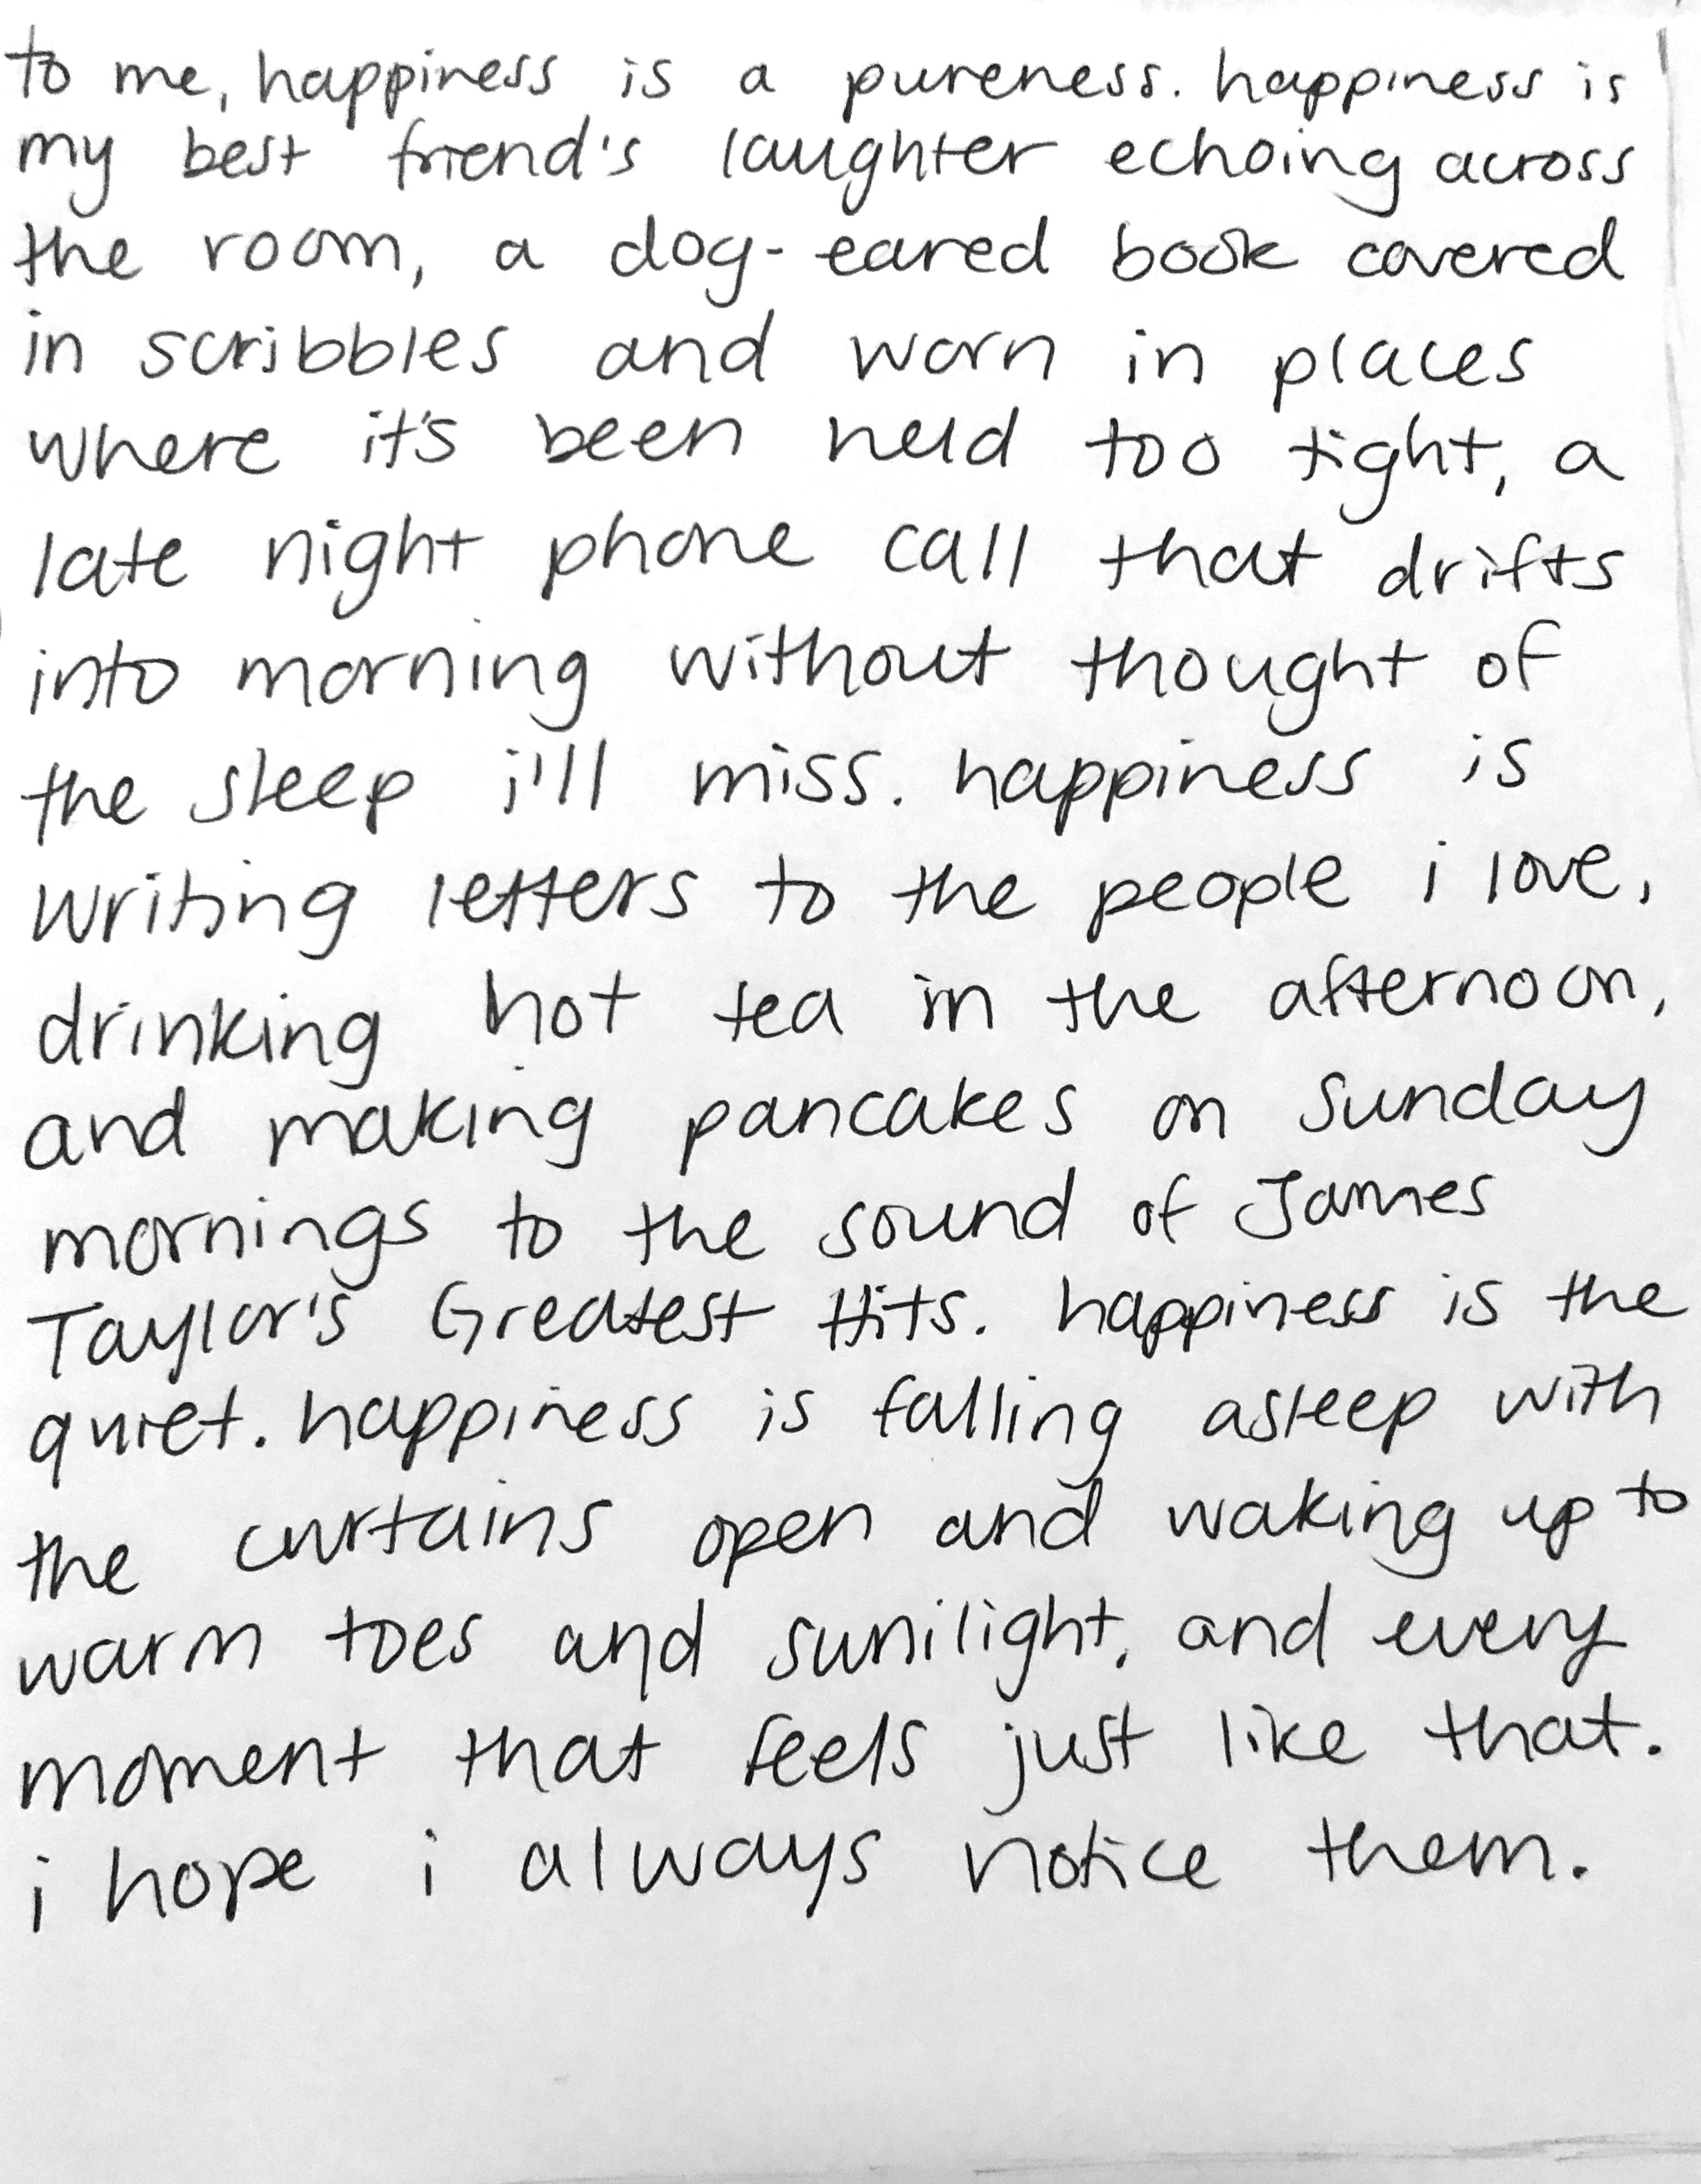 to me, happiness is a pureness. happiness is
my best friend's laughter echoing across
the room, a dog-eared book covered
in scribbles and worn in places
where it's been held too tight, a
late night phone call that drifts
into morning without thought of
the sleep i'll miss. happiness is
writing letters to the people i love,
drinking hot tea in the afternoon,
and making pancakes on Sunday
mornings to the sound of James
Taylor's Greatest Hits. happiness is the
quiet. happiness is falling asleep with
the curtains open and waking up to
warm toes and sunlight. and every
moment that feels just like that.
i hope i always notice them.